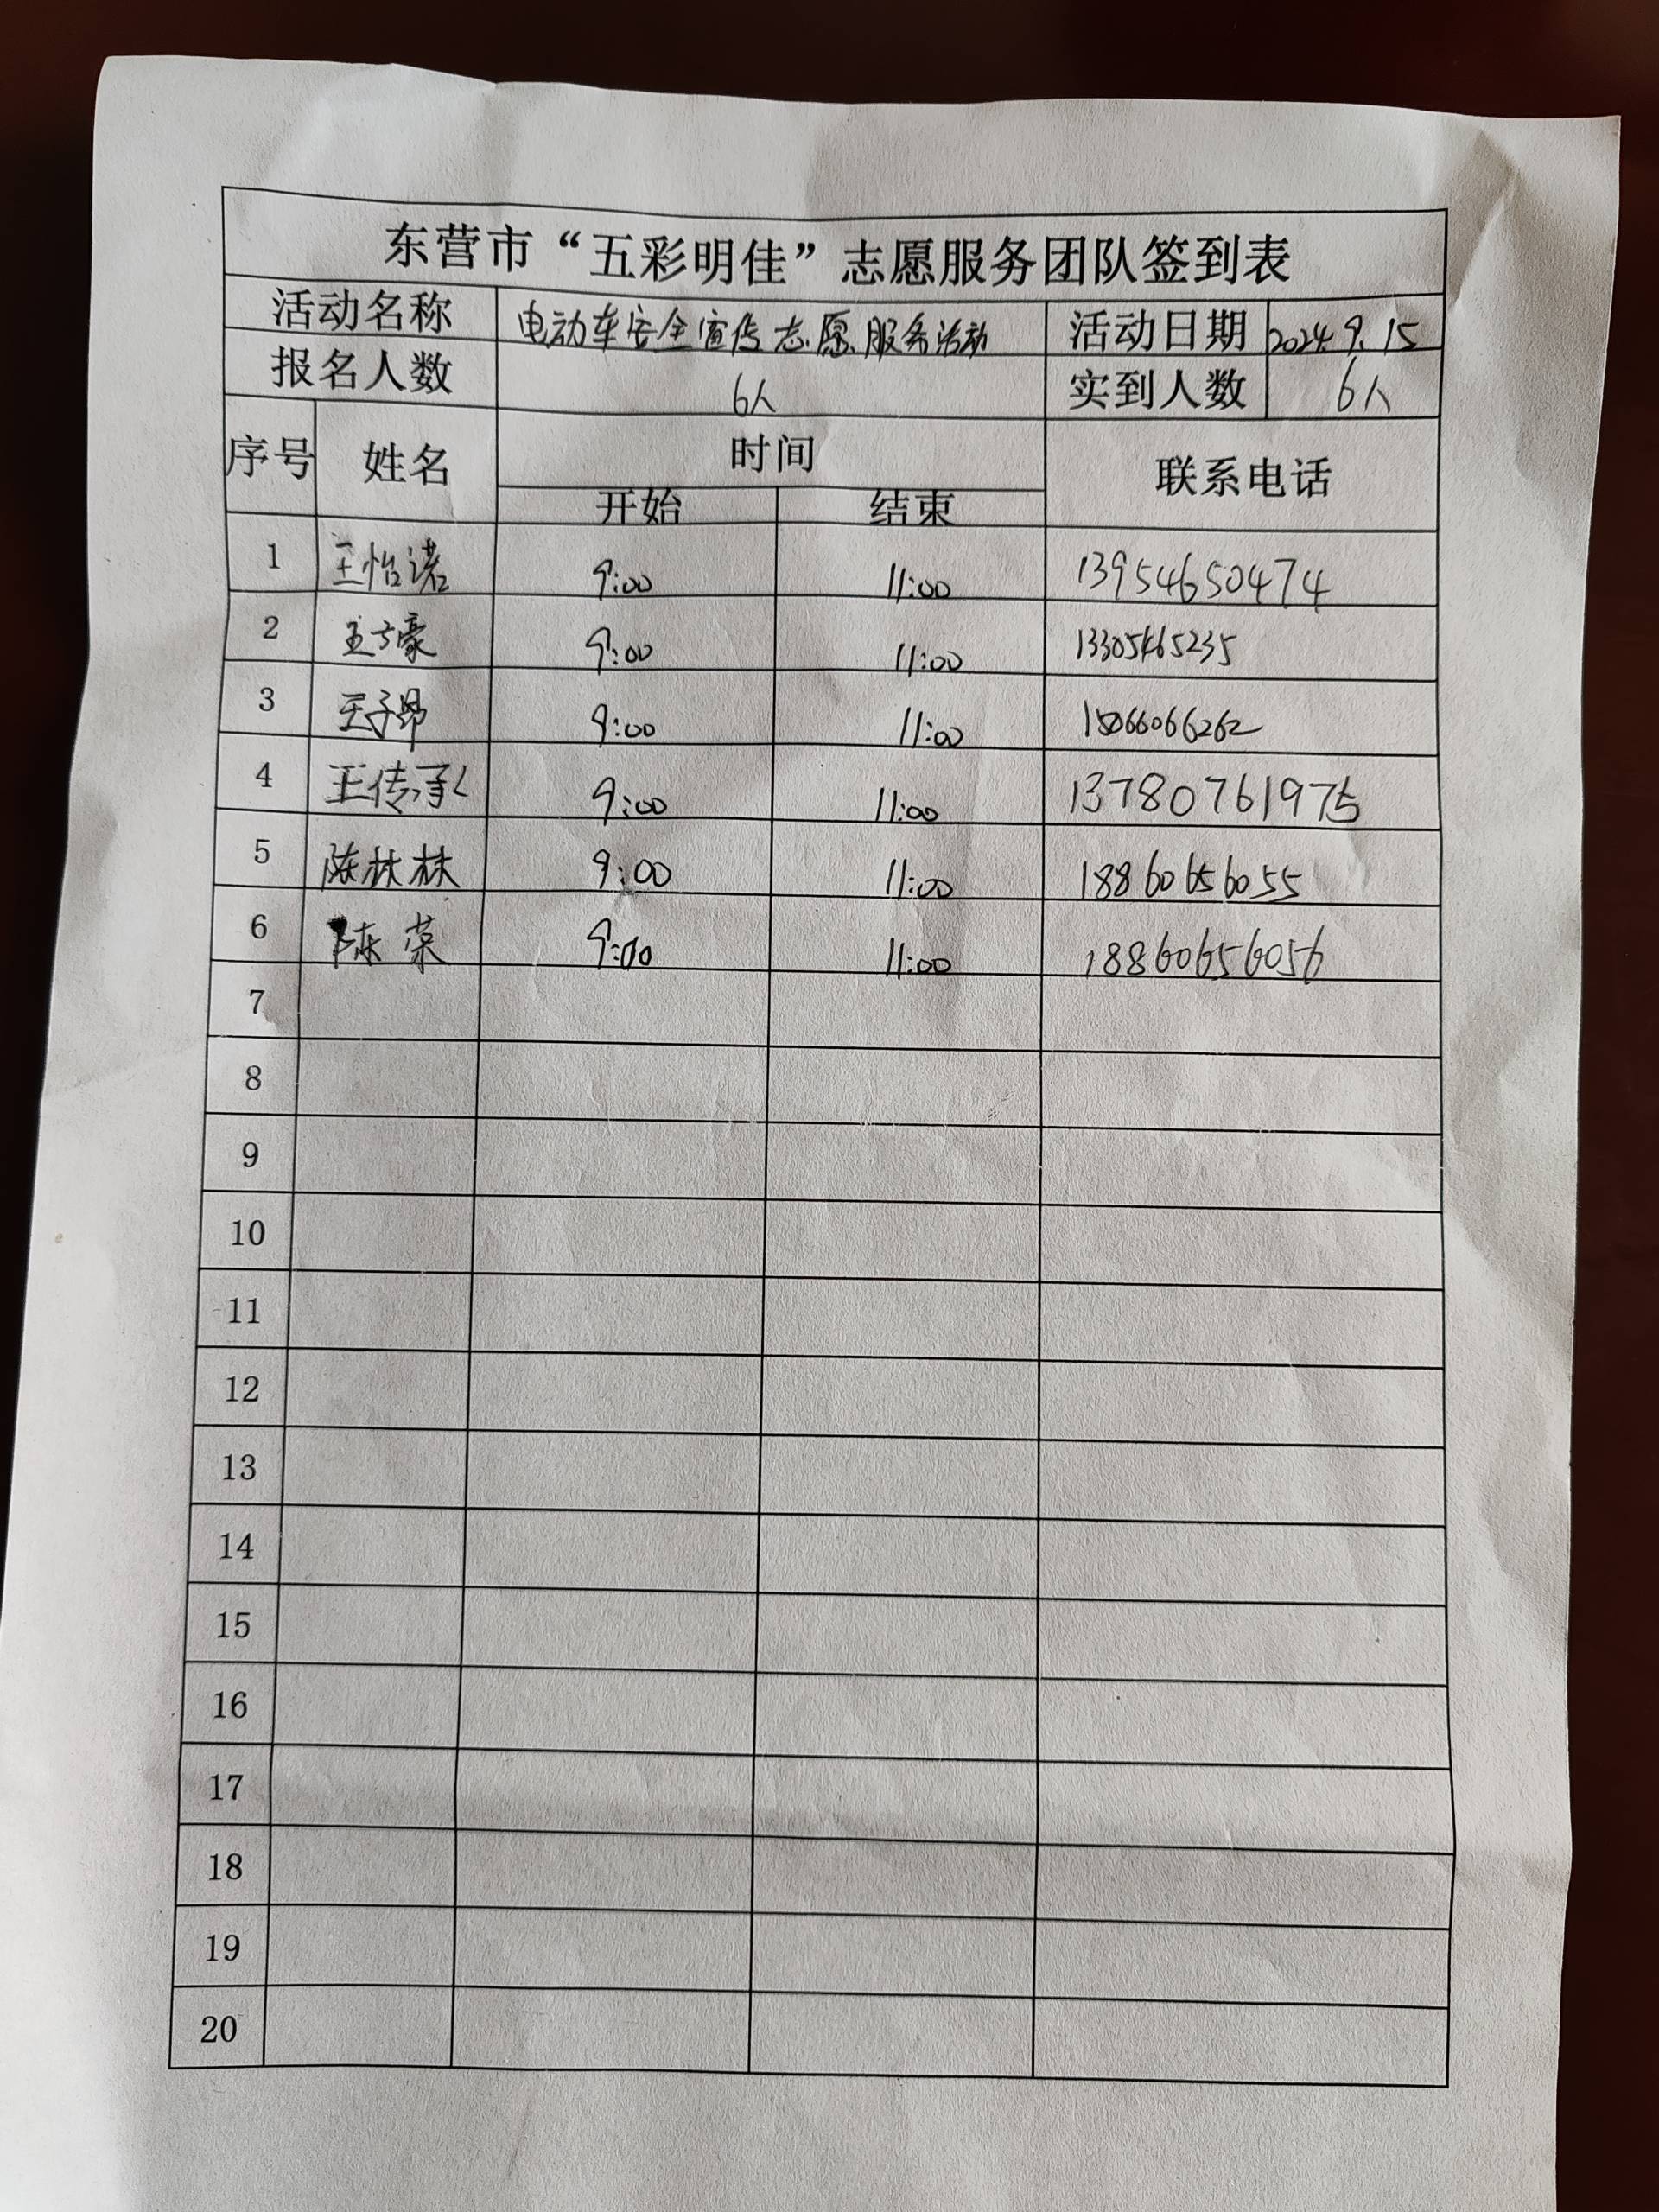 东营市“五彩明佳”志愿服务团队签到表
活动名称 电动车安全宣传志愿服务活动 活动日期 2024.9.15
报名人数 6人 实到人数 6人
序号 姓名 时间 联系电话
开始 结束
1 王怡诺 9:00 11:00 13954650474
2 王子豪 9:00 11:00 13305465235
3 王子昂 9:00 11:00 15066066262
4 王传承 9:00 11:00 13780761975
5 陈林林 9:00 11:00 18860656055
6 陈荣 9:00 11:00 18860656056
7
8
9
10
11
12
13
14
15
16
17
18
19
20